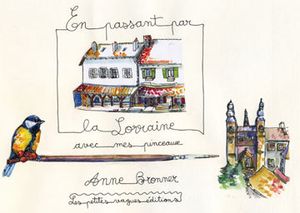 En passant par
la Lorraine
avec mes pinceaux
Anne Bronner
Les petites vagues éditions